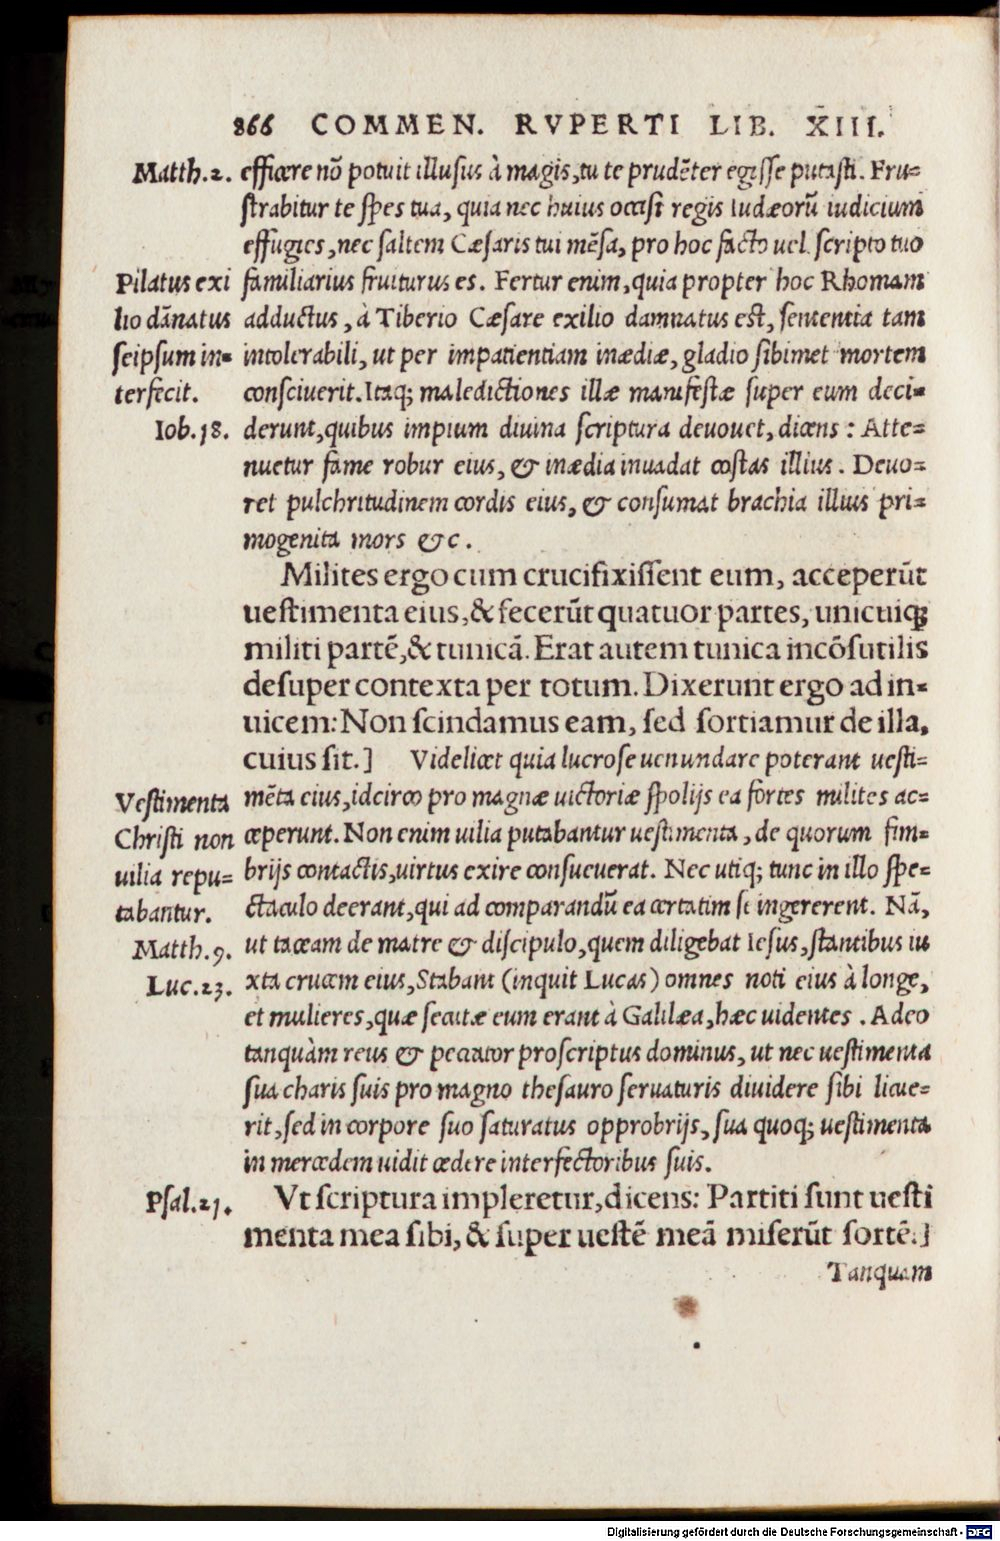 866 COMMEN. RVPERTI LIB. XIII.
Matth.2. efficere nõ potuit illusus à magis, tu te prudẽter egisse putasti. Fru=
strabitur te spes tua, quia nec huius occisi regis Iudæorũ iudicium
effugies, nec saltem Cæsaris tui mẽsa, pro hoc facto uel scripto tuo
Pilatus exi familiarius fruiturus es. Fertur enim, quia propter hoc Rhomam
lio dãnatus adductus, à Tiberio Cæsare exilio damnatus est, sententia tam
seipsum in= intolerabili, ut per impatientiam inædiæ, gladio sibimet mortem
terfecit. consciuerit. Itaq; maledictiones illæ manifestæ super eum deci=
Iob.18. derunt, quibus impium diuina scriptura deuouet, dicens : Atte=
nuetur fame robur eius, & inædia inuadat costas illius. Deuo=
ret pulchritudinem cordis eius, & consumat brachia illius pri=
mogenita mors &c.
Milites ergo cum crucifixissent eum, acceperũt
uestimenta eius, & fecerũt quatuor partes, unicuiq;
militi partẽ, & tunicã. Erat autem tunica incõsutilis
desuper contexta per totum. Dixerunt ergo ad in=
uicem: Non scindamus eam, sed sortiamur de illa,
cuius sit.] Videlicet quia lucrose uenundare poterant uesti=
Vestimenta mẽta eius, idcirco pro magnæ uictoriæ spolijs ea fortes milites ac=
Christi non ceperunt. Non enim uilia putabantur uestimenta, de quorum fim=
uilia repu= brijs contactis, uirtus exire consueuerat. Nec utiq; tunc in illo spe=
tabantur. ctaculo deerant, qui ad comparandũ ea certatim se ingererent. Nã,
Matth.9. ut taceam de matre & discipulo, quem diligebat Iesus, stantibus iu
Luc.23. xta crucem eius, Stabant (inquit Lucas) omnes noti eius à longe,
et mulieres, quæ secutæ eum erant à Galilæa, hæc uidentes. Adeo
tanquàm reus & peccator proscriptus dominus, ut nec uestimenta
sua charis suis pro magno thesauro seruaturis diuidere sibi licue=
rit, sed in corpore suo saturatus opprobrijs, sua quoq; uestimenta
in mercedem uidit cedere interfectoribus suis.
Psal.21. Vt scriptura impleretur, dicens: Partiti sunt uesti
menta mea sibi, & super uestẽ meã miserũt sortẽ.]
Tanquam
Digitalisierung gefördert durch die Deutsche Forschungsgemeinschaft - DFG